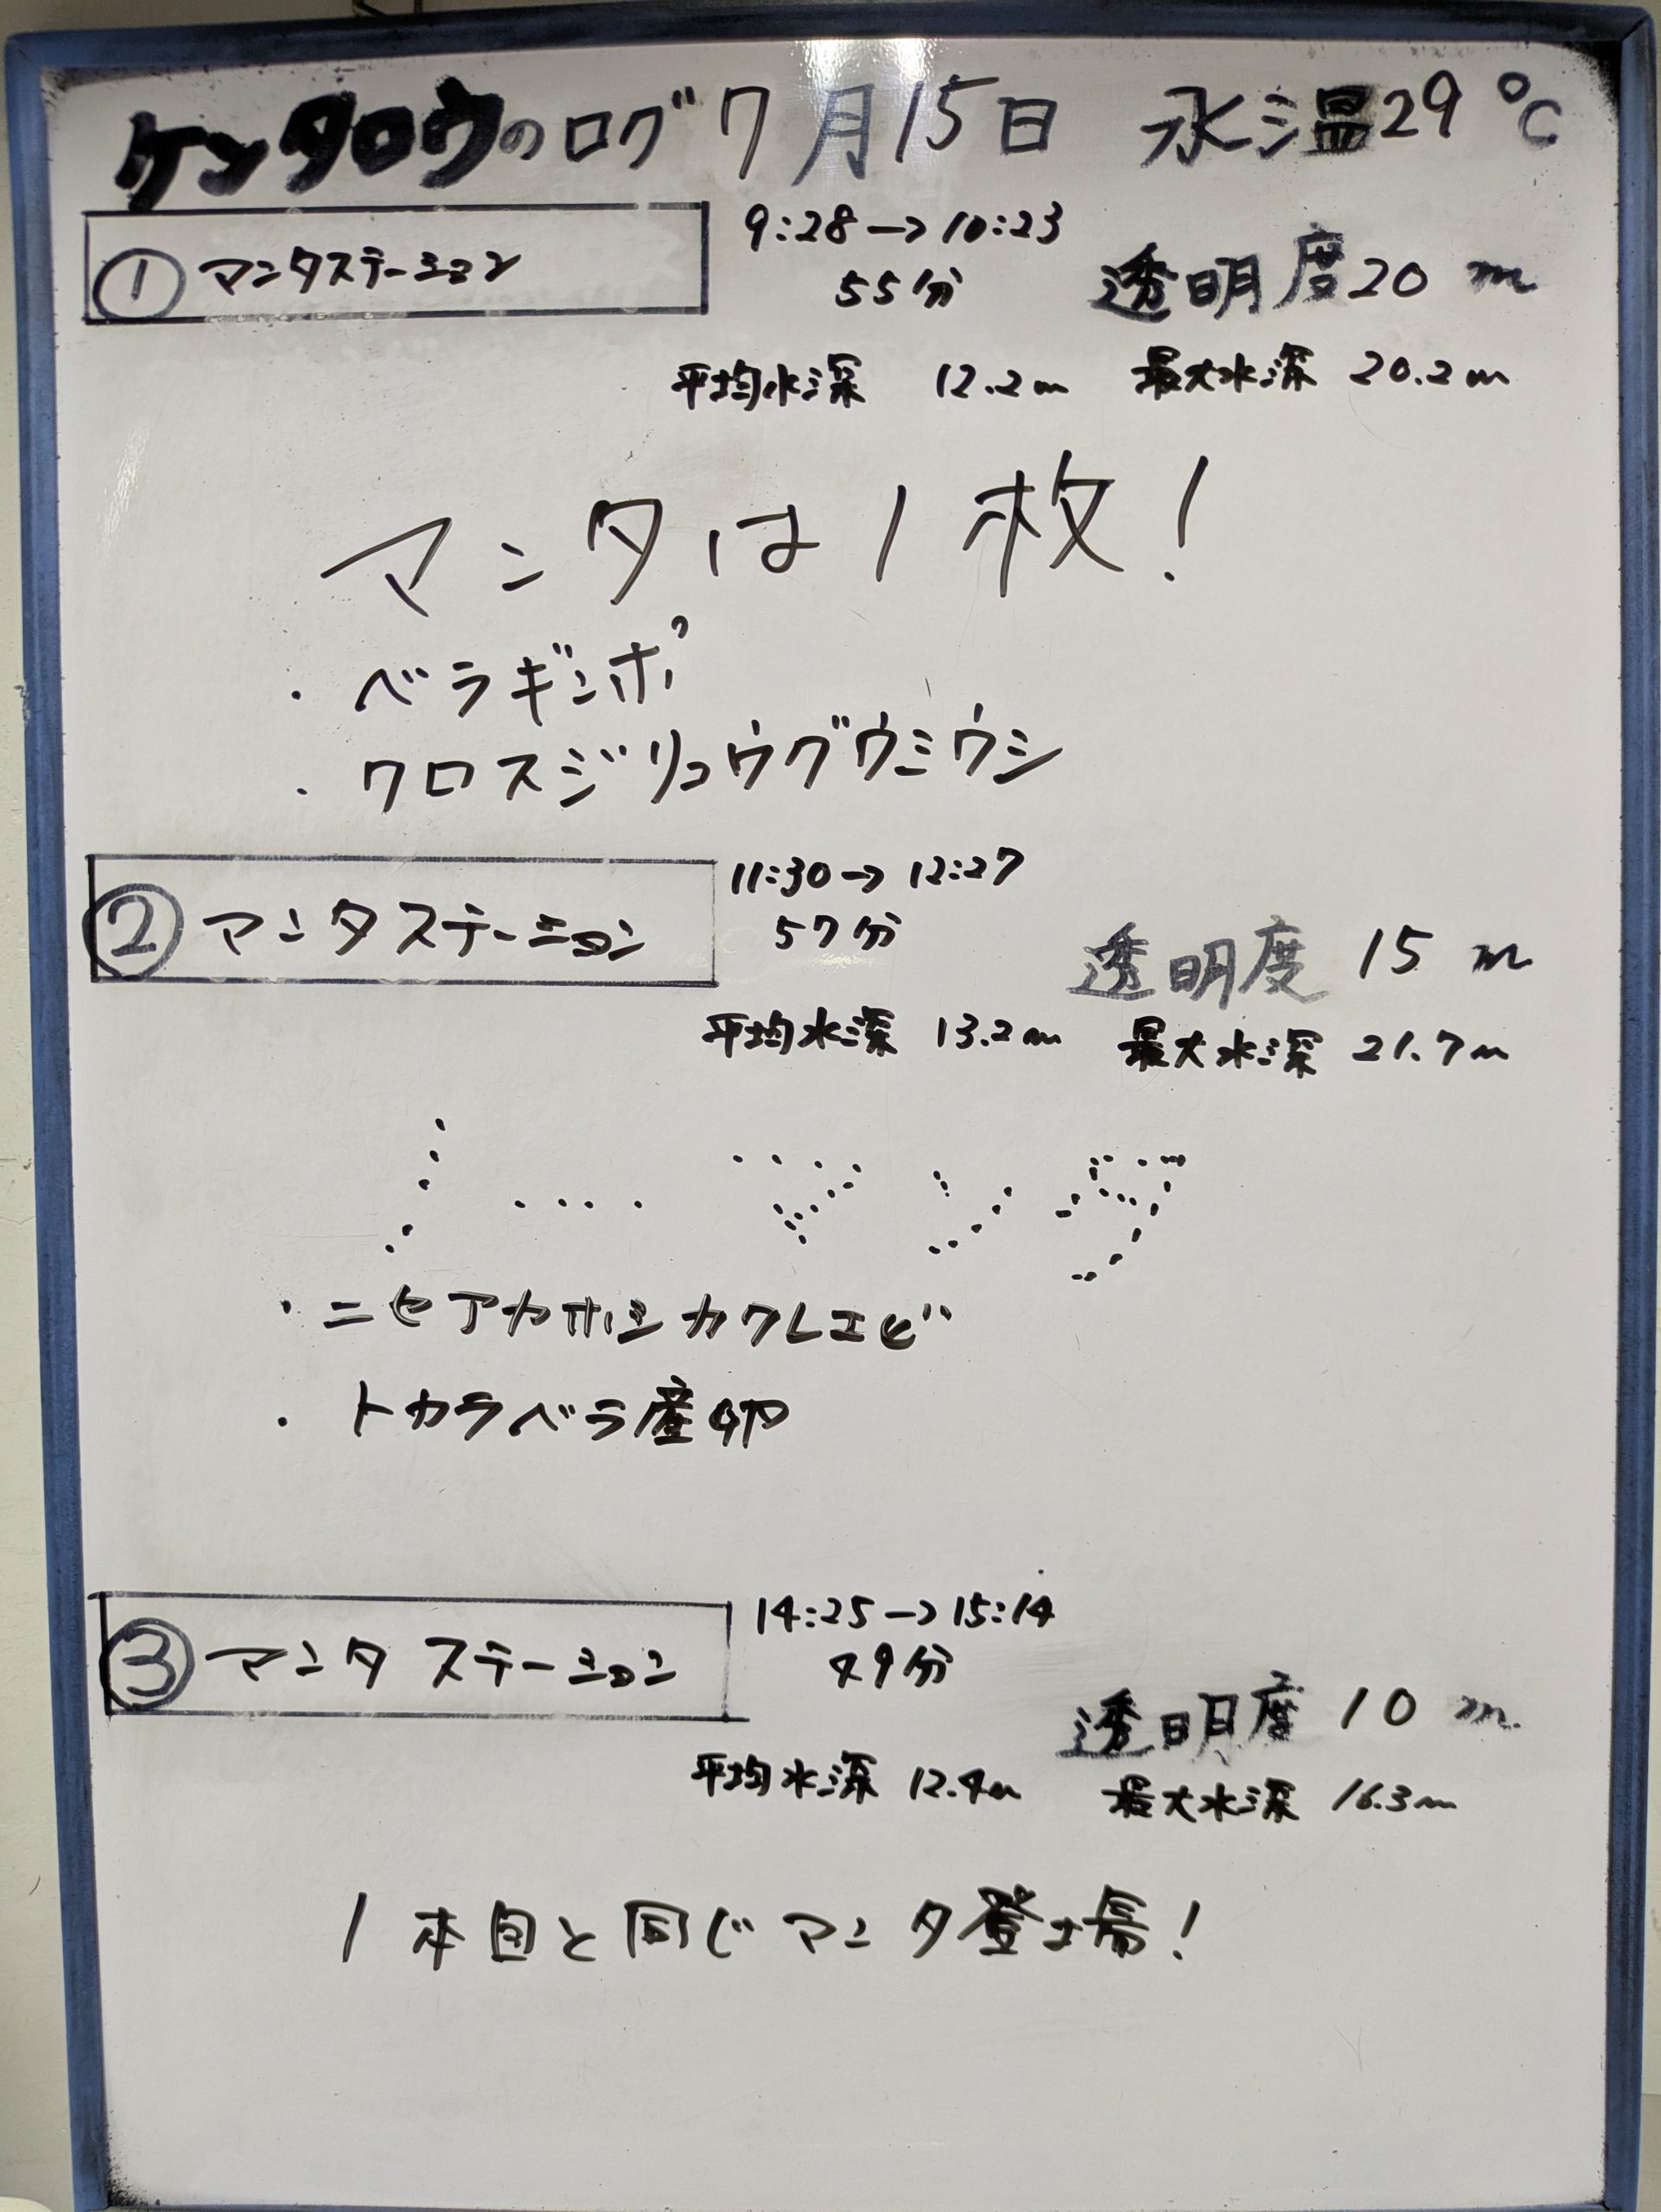 ケンタロウのログ 7月15日 水温29℃
① マンタステーション
9:28→10:23
55分
透明度20 m
平均水深 12.2m 最大水深 20.2m
マンタは1枚!
・ベラギンポ
・クロスジリュウグウミウシ
② マンタステーション
11:30→12:27
57分
透明度 15 m
平均水深 13.2m 最大水深 21.7m
ノーマンタ
・ニセアカホシカクレエビ
・トカラベラ産卵
③ マンタステーション
14:25→15:14
49分
透明度 10 m
平均水深 12.4m 最大水深 16.3m
1本目と同じマンタ登場!